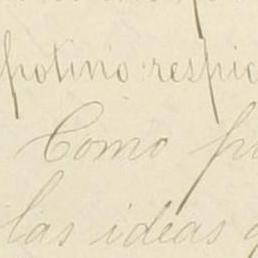 potino respic
Como p
las ideas